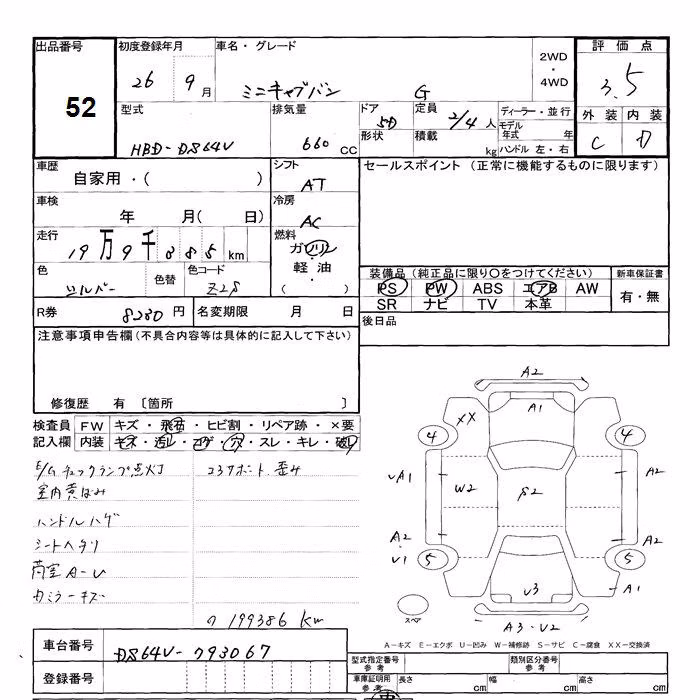 出品番号 初度登録年月 車名・グレード 2WD・4WD 評価点
52 26年 9月 ミニキャブバン G 3.5
型式 排気量 ドア 定員 ディーラー・並行 外装 内装
HBD-DS64V 660 CC 5D 2/4人 モデル年式 年 C D
形状 積載 kg ハンドル 左・右
車歴 シフト セールスポイント (正常に機能するものに限ります)
自家用・( ) AT
車検 冷房
年 月( 日) AC
走行 燃料
19万9千385km ガソリン・軽油( )
色 色替 色コード 装備品(純正品に限り○をつけてください) 新車保証書
シルバー Z2S PS PW ABS エアB AW 有・無
SR ナビ TV 本革
R券 8230円 名変期限 月 日 後日品
注意事項申告欄(不具合内容等は具体的に記入して下さい)
修復歴 有 〔箇所 〕
検査員記入欄 FW キズ・飛石・ヒビ割・リペア跡・×要
内装 キズ・汚レ・コゲ・穴・スレ・キレ・破レ
E/Gチェックランプ点灯 コアサポート歪み
室内黄ばみ
ハンドルハゲ
シートヘタリ
荷室A-U
カミラーキズ
199386 km
A2
A1
XX
4 4
UA1 W2 S2 A2
A2 A2
U1
5 5
U3 A1
スペア
A3・U2
A-キズ E-エクボ U-凹み W-補修跡 S-サビ C-腐食 XX-交換済
車台番号 DS64V-793067
登録番号
型式指定番号 参考 類別区分番号 参考
車庫証明用 参考 長さ cm 幅 cm 高さ cm